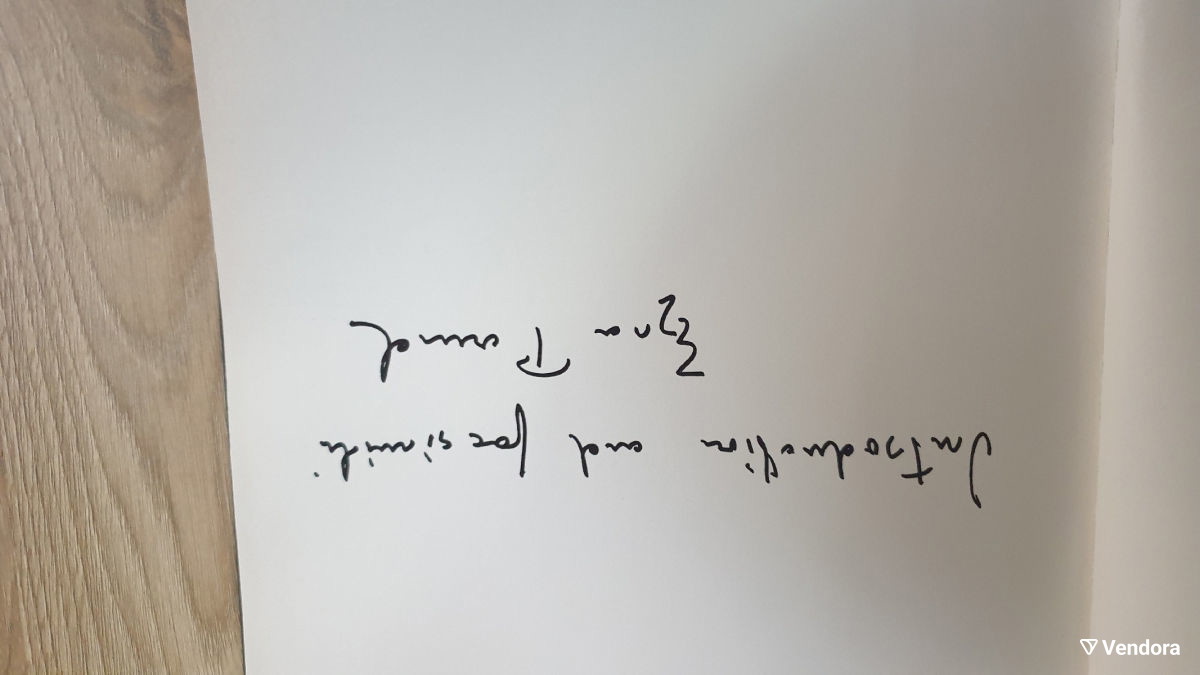 Introduction and facsimili
Ezra Pound
Vendora